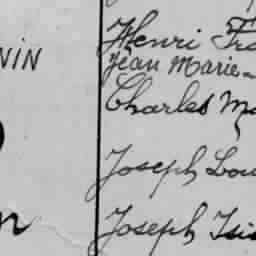 Henri Fra
Jean Marie
NIN
Charles Ma
Joseph Lou
Joseph Isi